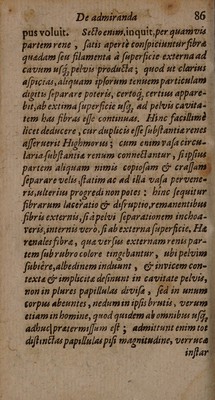 De admiranda 86
pus voluit. Secto enim, inquit, per quamvis
partem rene, satis apertè conspiciuntur fibræ
quædam seu filamenta à superficie externa ad
cavum usq; pelvis producta; quod ut clarius
aspicias, aliquam ipsorum tenuem particulam
digitis separare poteris, certoq; certius appare-
bit, ab extima superficie usq; ad pelvis cavita-
tem has fibras esse continuas. Hinc facillimè
licet deducere, cur duplicis esse substantiæ renes
asseruerit Highmorus; cum enim vasa circu-
laria substantia renum connectantur, si ipsius
partem aliquam nimis copiosam & crassam
separare velis, statim ac ad illa vasa pervene-
ris, ulterius progredi non potes: hinc sequitur
fibrarum laceratio & disruptio, remanentibus
fibris externis, si à pelvi separationem inchoa-
veris, internis verò, si ab externa superficie. Hæ
renales fibræ, quæ versus externam renis par-
tem subrubro colore tingebantur, ubi pelvim
subiêre, albedinem induunt, & invicem con-
nexæ & implicitæ desinunt in cavitate pelvis,
non in plures papillulas divisa, sed in unum
corpus abeuntes, nedum in ipsis brutis, verum
etiam in homine, quod quidem ab omnibus usq;
adhuc prætermissum est; admittunt enim tot
distinctas papillulas pisi magnitudine, verrucæ
instar